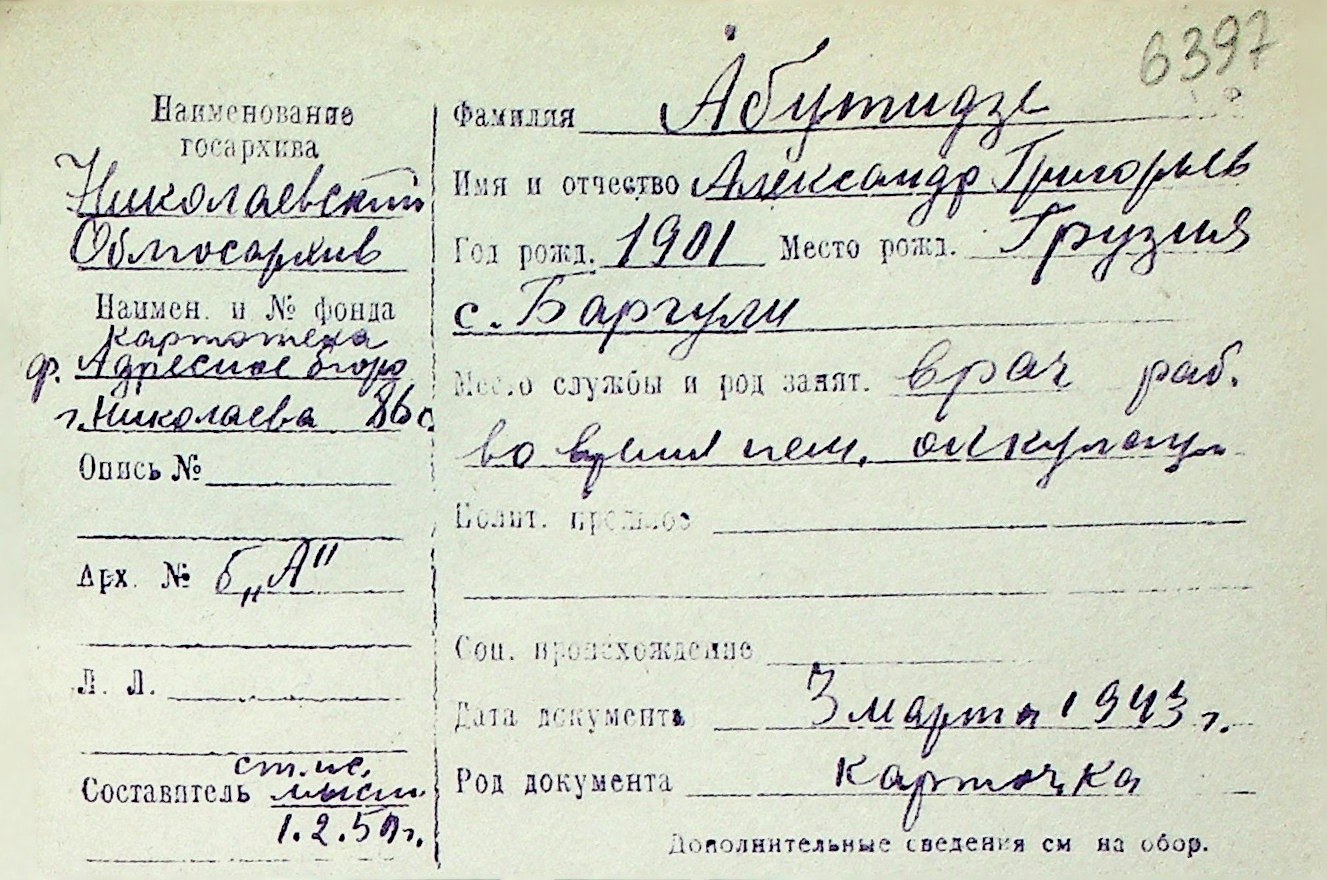 6397
Наименование
госархива
Николаевский
Облгосархив
Наимен. и № фонда
картотека
ф. Адресное бюро
г. Николаева
Опись №
Арх. № б „А"
Л. Л.
Составитель
ст. ис.
1.2.50 г.
Фамилия Абутидзе
Имя и отчество Александр Григорьев
Год рожд. 1901 Место рожд. Грузия
с. Баргули
Место службы и род занят. врач раб.
во время нем. оккупац.
Полит. прошлое
Соц. происхождение
Дата документа 3 марта 1943 г.
Род документа карточка
Дополнительные сведения см на обор.